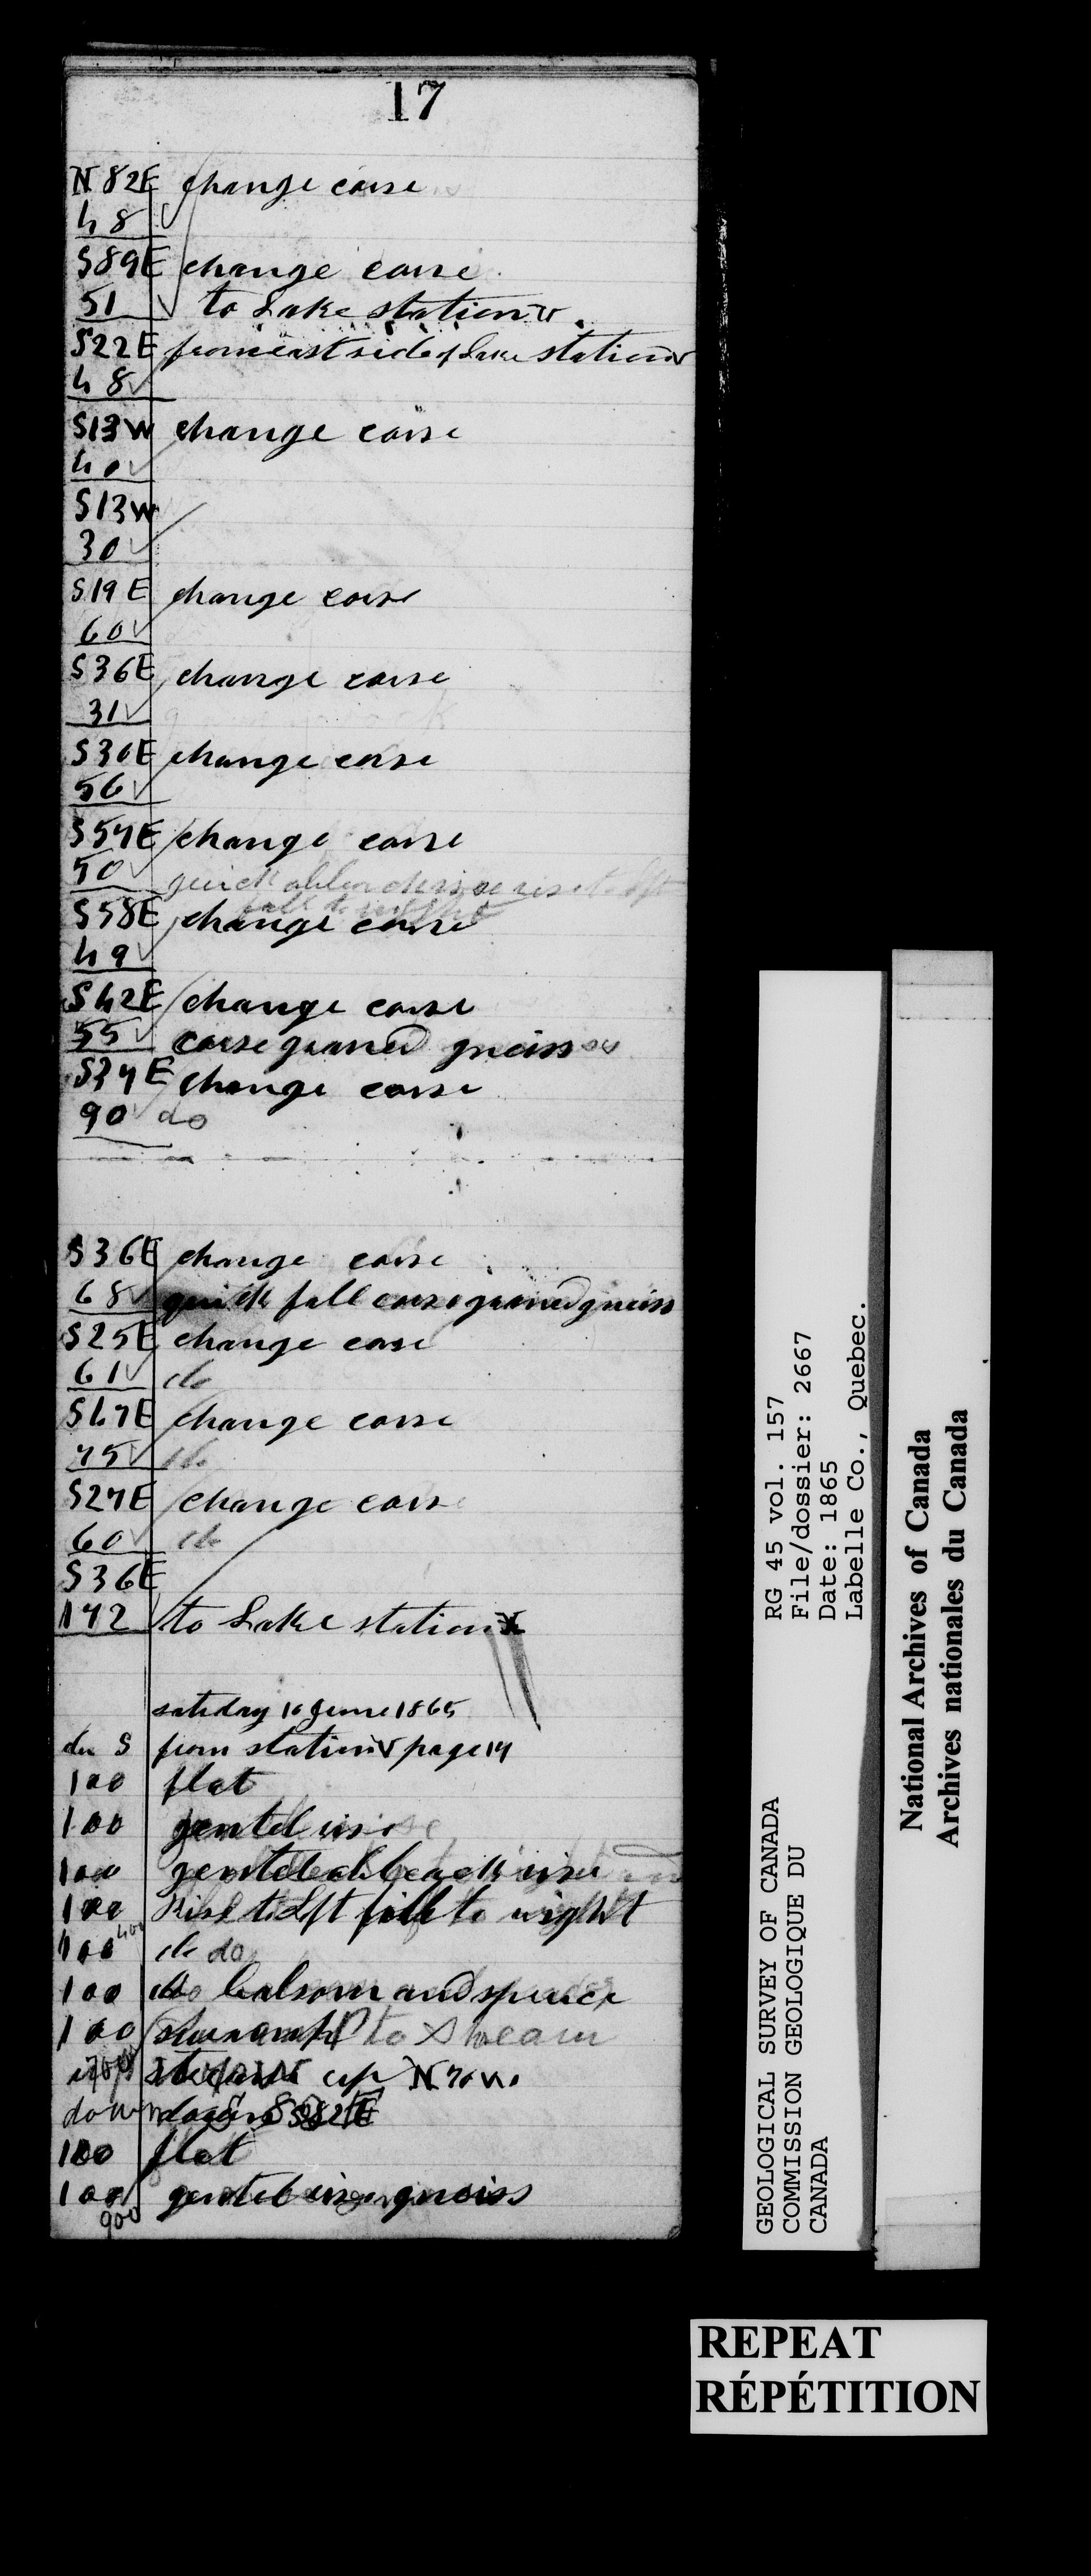 17
N 82E change corse
48
S89E change corse
51 to Lake station V
S22E from east side of Lake station V
48
S13W change corse
40
S13W
30
S19E change corse
60
S36E change corse
31
S30E change corse
56
S57E change corse
50 quick
S58E change corse
49
S42E change corse
55 corse graned gneiss
S37E change corse
90 do
S36E change corse
68 quick fall corse graned gneiss
S25E change corse
61 do
S47E change corse
75 do
S27E change corse
60 do
S36E
172 to Lake station X
saterday 10 June 1865
du S from station V page 14
100 flat
100 gentel rise
100 gentel rise
100 Rise to Left fall to wright
100 400 do do
100 do balsom and spruce
100 to stream
up N70W
down S82E
100 flat
100 gentel rise gneiss
900
RG 45 vol. 157
File/dossier: 2667
Date: 1865
Labelle Co., Quebec.
GEOLOGICAL SURVEY OF CANADA
COMMISSION GEOLOGIQUE DU
CANADA
National Archives of Canada
Archives nationales du Canada
REPEAT
RÉPÉTITION